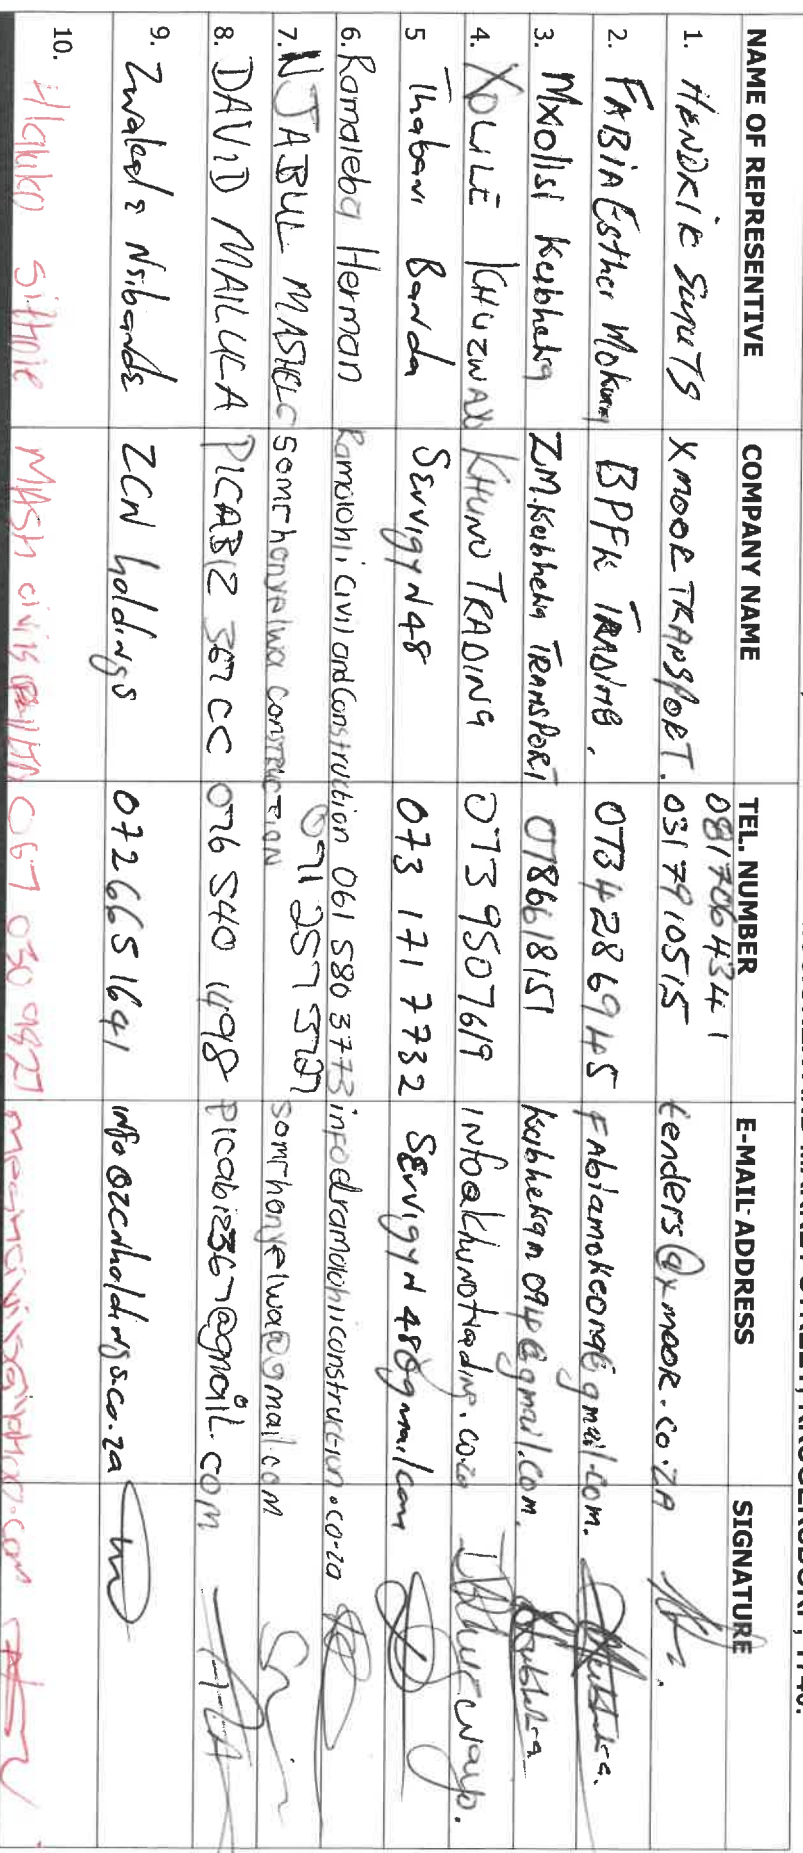 NAME OF REPRESENTIVE COMPANY NAME TEL. NUMBER E-MAIL ADDRESS SIGNATURE
1. HENDRIK SMUTS X MOOR TRANSPORT. 0817064341 0317910515 tenders@xmoor.co.ZA
2. FABIA Esther BPFK TRADING. 0734286945 FAbiamokeona@gmail.com.
3. Mxolisi Kubheka ZM.Kubheka TRANSPORT 0786618151 kubhekan094@gmail.com.
4. XOLILE KHUZWAYO KHUNO TRADING 0739507619 info@khunotrading.co.za
5 Thabani Banda Servigyn48 073 171 7732 Servigyn48@gmail.com
6. Ramaleba Herman Ramolohli Civil and Construction 061 580 3773 info@ramolohliconstruction.co.za
7. NJABUL MASHELE Somkhanyelwa CONSTRUCTION 071 257 5727 somkhanyelwa@gmail.com
8. DAVID MAILULA PICABIZ 367 CC 076 540 1498 Picabiz367@gmail.com
9. Zwakele Nsibande ZCN holdings 0726651641 info@zcnholdings.co.za
10. Hlauko Sithole MASH civils 067 030 9827